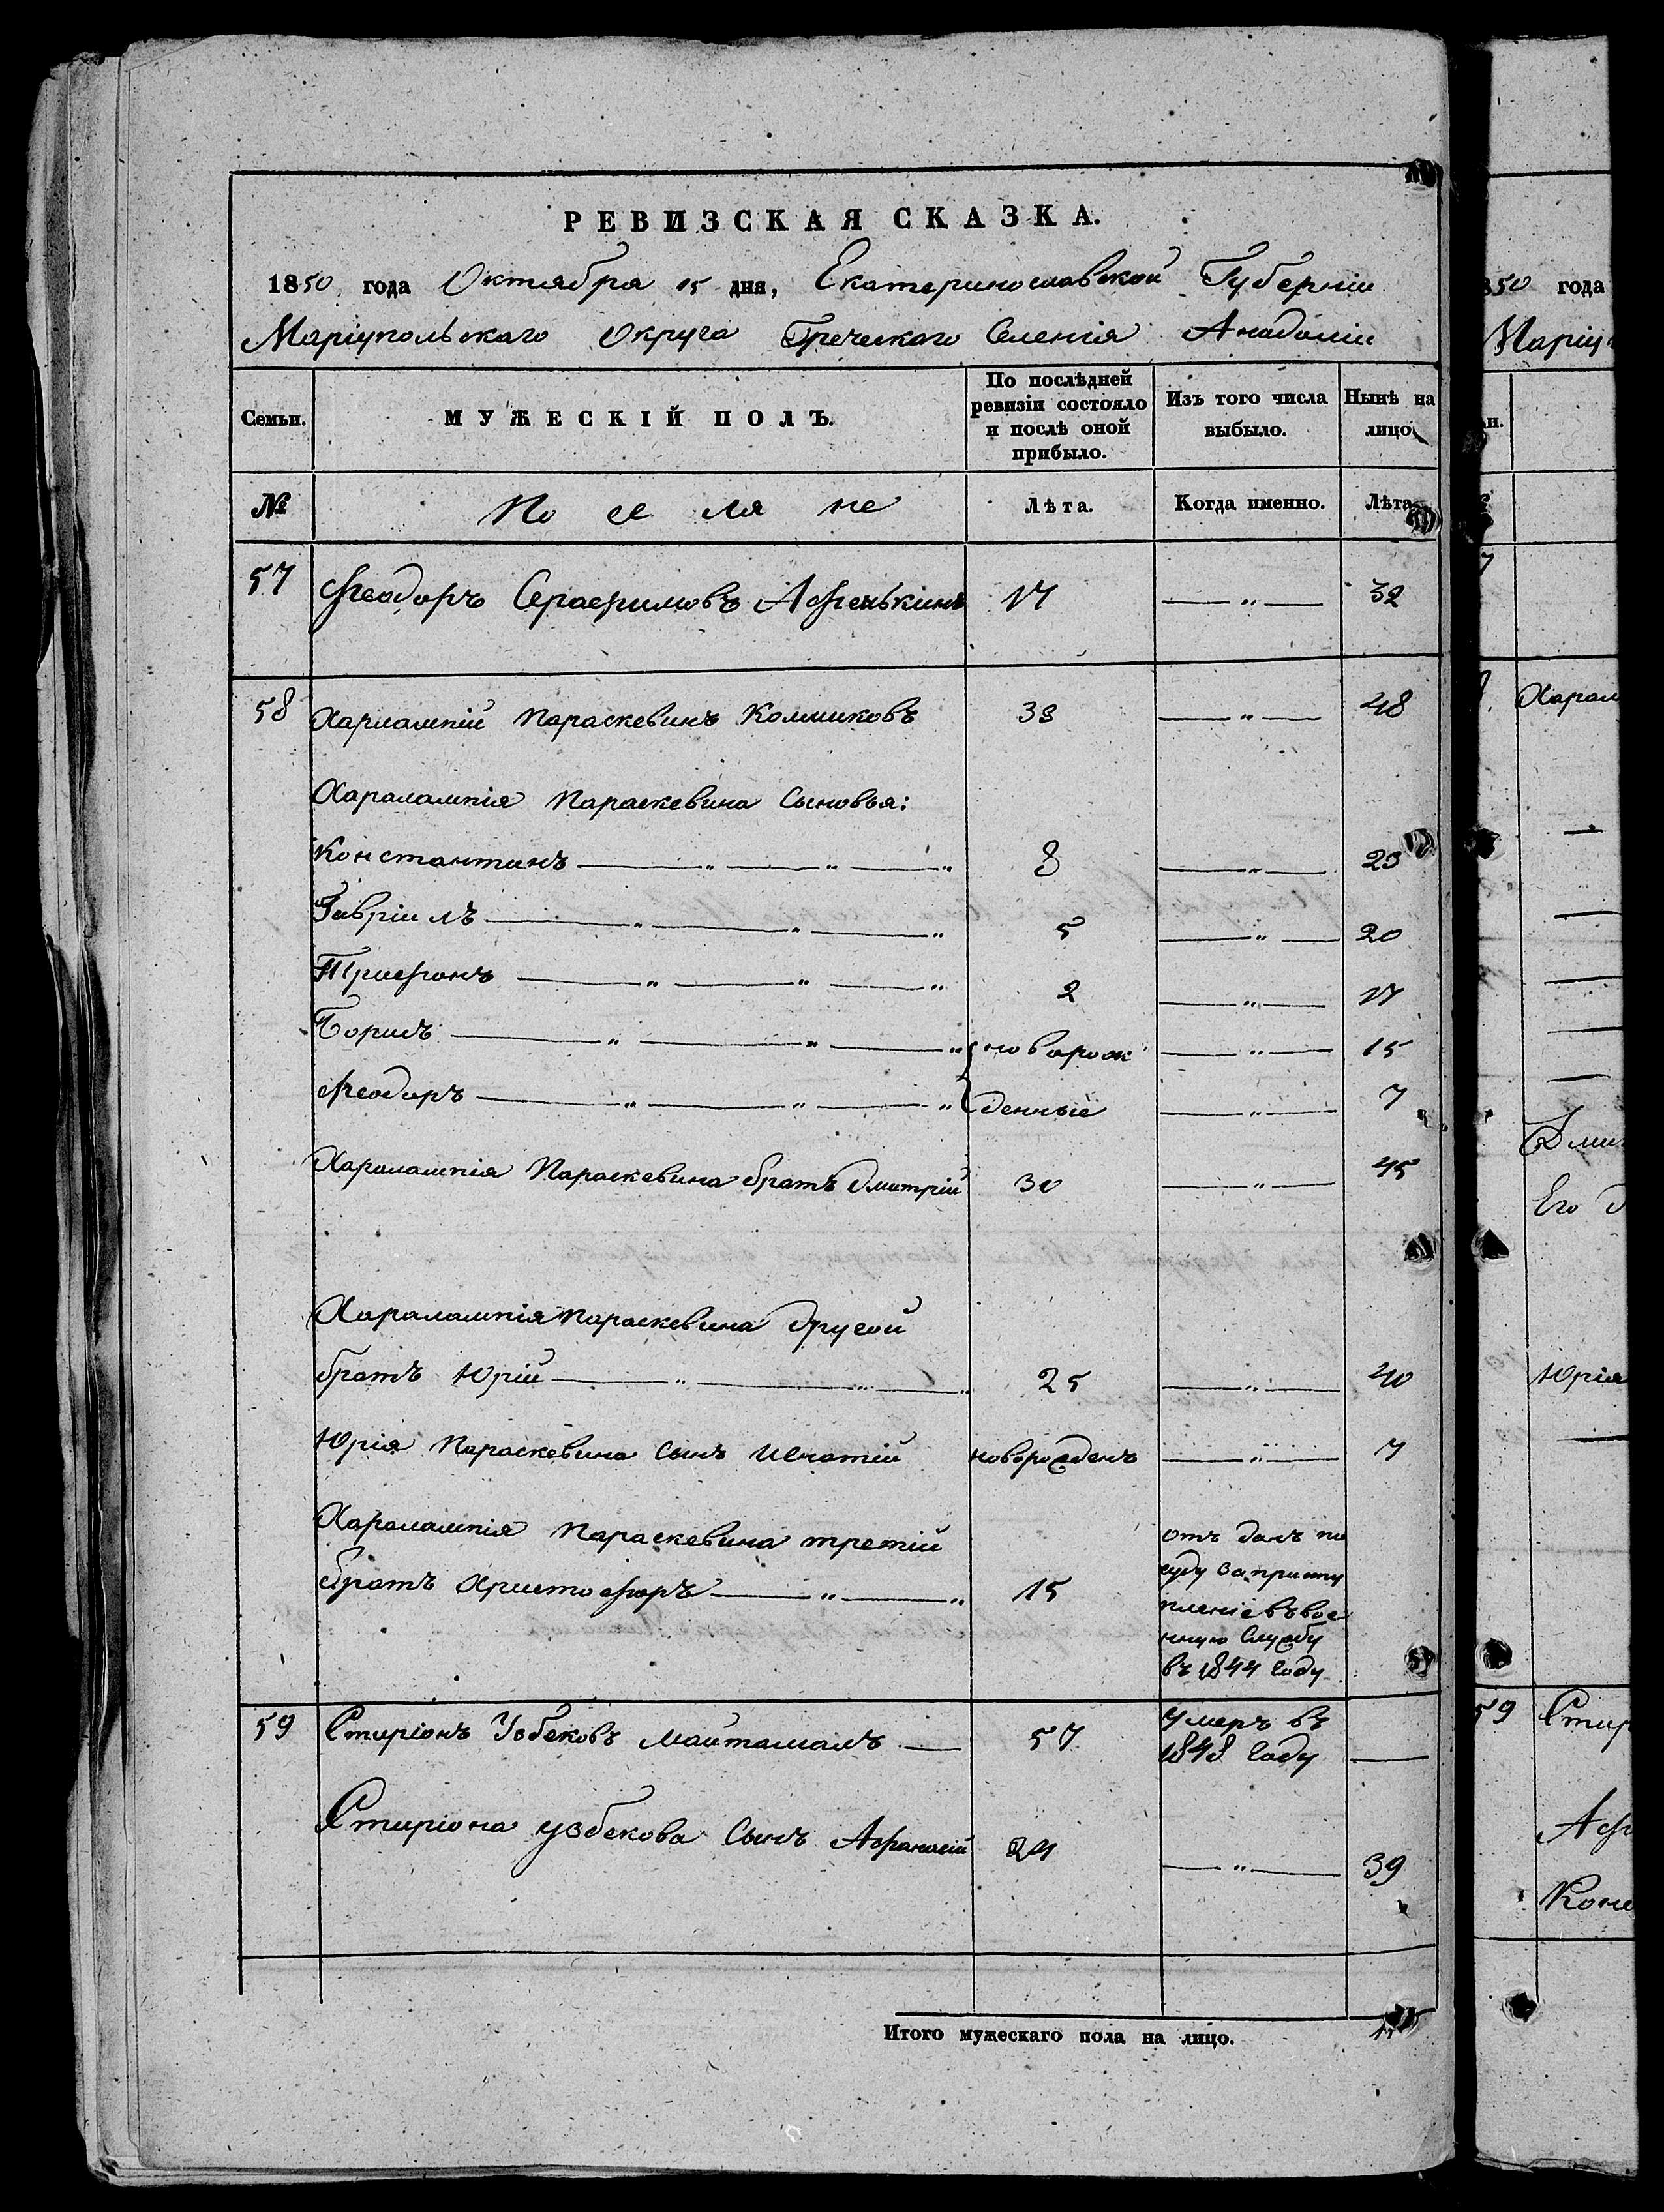 РЕВИЗСКАЯ СКАЗКА.
1850 года Октября 15 дня, Екатеринославской Губерніи
Маріупольскаго Округа Греческаго Селенія Анадоліи
Семьи. МУЖЕСКІЙ ПОЛЪ. По послѣдней ревизіи состояло и послѣ оной прибыло. Изъ того числа выбыло. Нынѣ на лицо.
№ Поселяне Лѣта. Когда именно. Лѣта
57 Феодоръ Серафимовъ Афенькинъ 17 —„— 32
58 Харлампій Параскевинъ Колмиковъ 33 —„— 48
Харалампія Параскевина Сыновья:
Константинъ —„—„—„ 8 —„— 23
Гавріилъ —„—„—„ 5 —„— 20
Трифонъ —„—„—„ 2 —„— 17
Борисъ —„—„—„ новорож —„— 15
Феодоръ —„—„—„ денные —„— 7
Харалампія Параскевина братъ Дмитрій 30 —„— 45
Харалампія Параскевина другой
братъ Юрій —„—„—„ 25 —„— 40
Юрія Параскевина Сынъ Игнатій новорожденъ —„— 7
Харалампія Параскевина третій
братъ Христофоръ —„—„ 15
отъ данъ по
суду за присту
пленіе въ вое
нную Службу
въ 1844 году
59 Стиріонъ Узбековъ Майтамалъ — 57 Умеръ въ
1848 году —
Стиріона Узбекова Сынъ Афанасій 24 —„— 39
Итого мужескаго пола на лицо.
50 года
Маріу
Харал
Дми
Его
Юрія
59 Стир
Аф
Кон